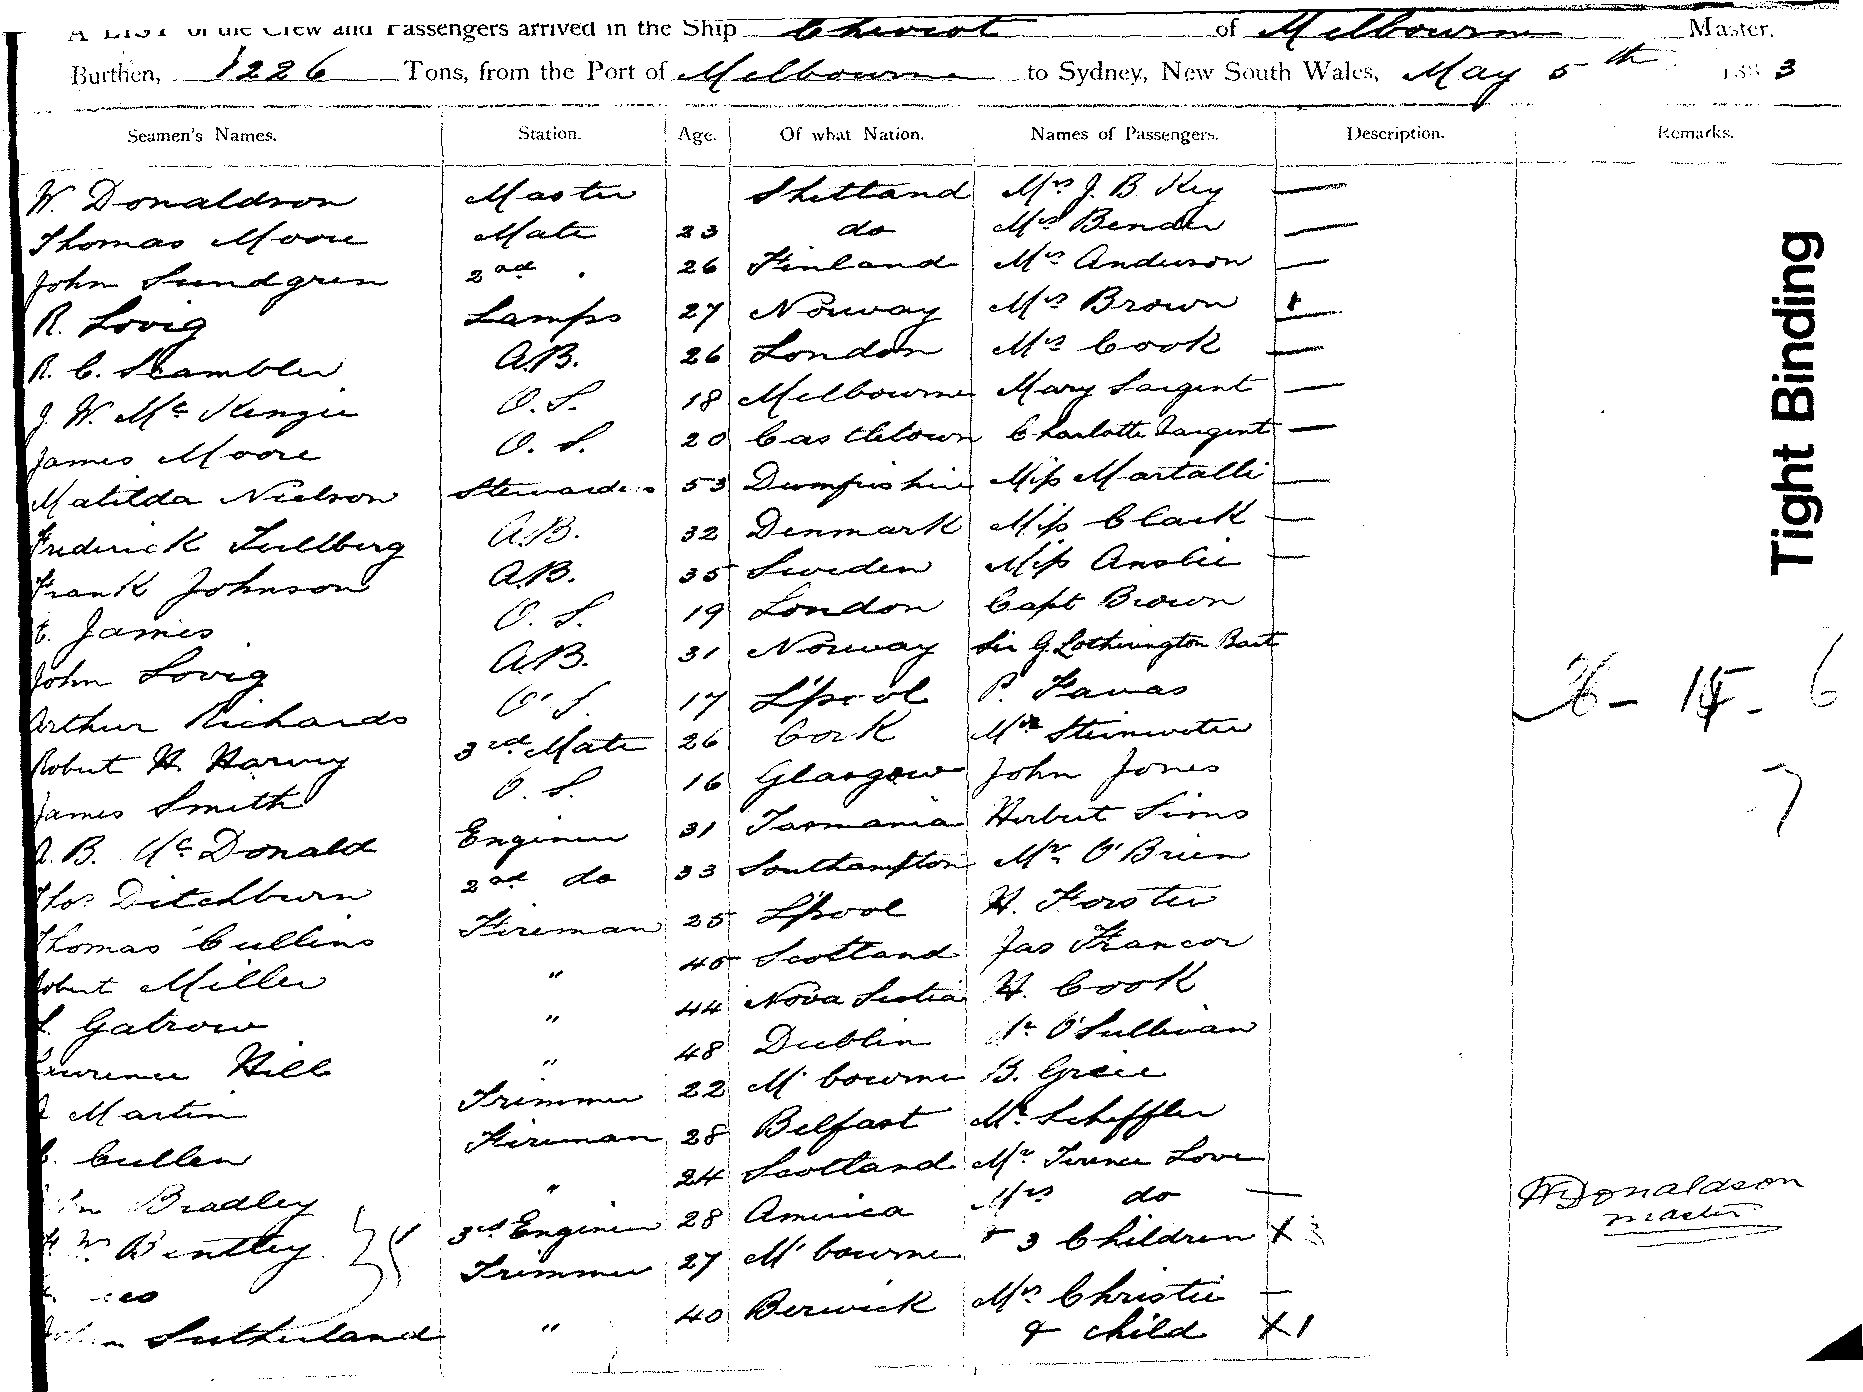 A LIST of the Crew and Passengers arrived in the Ship Cheviot of Melbourne Master,
Burthen, 1226 Tons, from the Port of Melbourne to Sydney, New South Wales, May 5th 1883
Seamen's Names. Station. Age. Of what Nation. Names of Passengers. Description. Remarks.
W. Donaldson Master Shetland Mrs J. B. Key —
Thomas Moore Mate 23 do Mrs Bender —
John Sundgren 2nd " 26 Finland Mrs Anderson —
R. Lovig Lamps 27 Norway Mrs Brown
R. C. Scambler A.B. 26 London Mrs Cook —
J. W. McKenzie O.S. 18 Melbourne Mary Sargent —
James Moore O.S. 20 Castletown Charlotte Sargent —
Matilda Nielson Stewardess 53 Dumfrishire Miss Martalli —
Frederick Tullberg A.B. 32 Denmark Miss Clark —
Frank Johnson A.B. 35 Sweden Miss Anslie —
E. James O.S. 19 London Capt Brown
John Lovig A.B. 31 Norway Sir G. Lotherington Bart
Arthur Richards O.S. 17 L'pool P. Favas
Robert H. Harvey 3rd Mate 26 Cork Mr Steinweter
James Smith O.S. 16 Glasgow John Jones
A. B. McDonald Engineer 31 Tasmania Herbert Sims
Thos Ditchburn 2nd do 33 Southampton Mr O'Brien
Thomas Cullins Fireman 25 L'pool H. Forster
Robert Miller " 45 Scotland Jas Francor
Gatrow " 44 Nova Scotia H. Cook
Lawrence Hill " 48 Dublin Mr O'Sullivan
J Martin Trimmer 22 M'bourne B. Greie
C. Cullen Fireman 28 Belfast Mr Scheffler
Bradley " 24 Scotland Mr Terence Love
Wm Bentley 3rd Engineer 28 America Mrs do —
Trimmer 27 M'bourne & 3 Children X 3
John Sutherland " 40 Berwick Mrs Christie —
& child X 1
Tight Binding
6
7
W Donaldson
Master